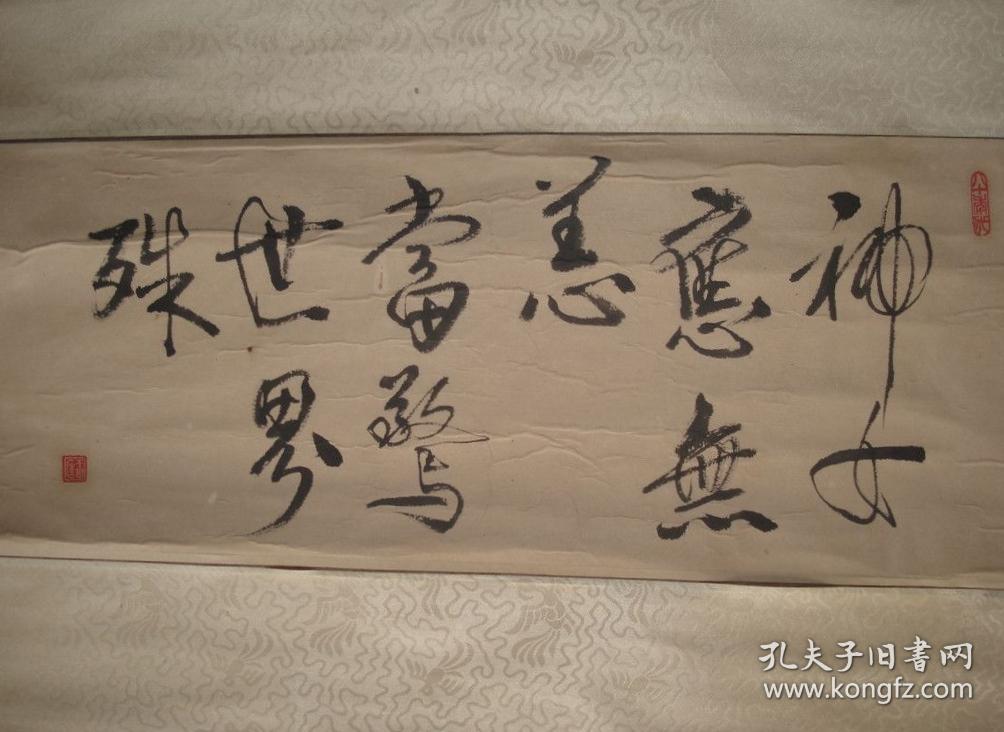 神女
應無
恙
當驚
世界
殊
孔夫子旧書网
www.kongfz.com